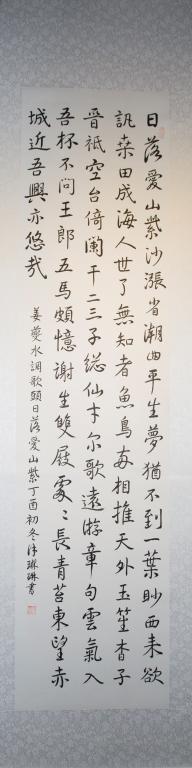 日落愛山紫沙漲省潮囬平生夢猶不到一葉眇西来欲
訊桒田成海人世了無知者魚鳥每相推天外玉笙杳子
晉祇空台倚闌干二三子総仙才尔歌遠游章句雲氣入
吾杯不問王郎五馬頗憶謝生雙屐處〻長青苔東望赤
城近吾興亦悠哉
姜夔水調歌頭日落愛山紫丁酉初冬琳琳書